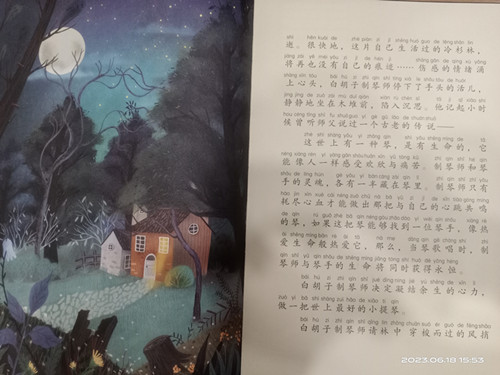 逝。很快地，这片自己生活过的冷杉林，
将再也没有自己的痕迹……伤感的情绪涌
上心头，白胡子制琴师停下了手头的活儿，
静静地坐在木堆前，陷入沉思。他记起小时
候曾听师父说过一个古老的传说——
这世上有一种琴，是有生命的，它
能像人一样感受欢欣与痛苦。制琴师和琴
手的灵魂，各有一半藏在琴里。制琴师只有
耗尽心血才能做出那把与自己的心跳共鸣
的琴，如果这把琴能够找到一位琴手，像热
爱生命般热爱它，那么，当琴歌唱时，制
琴师与琴手的生命将同时获得永恒。
白胡子制琴师决定凝结余生的心力，
做一把世上最好的小提琴。
白胡子制琴师请林中穿梭而过的风捎
2023.06.18 15:53